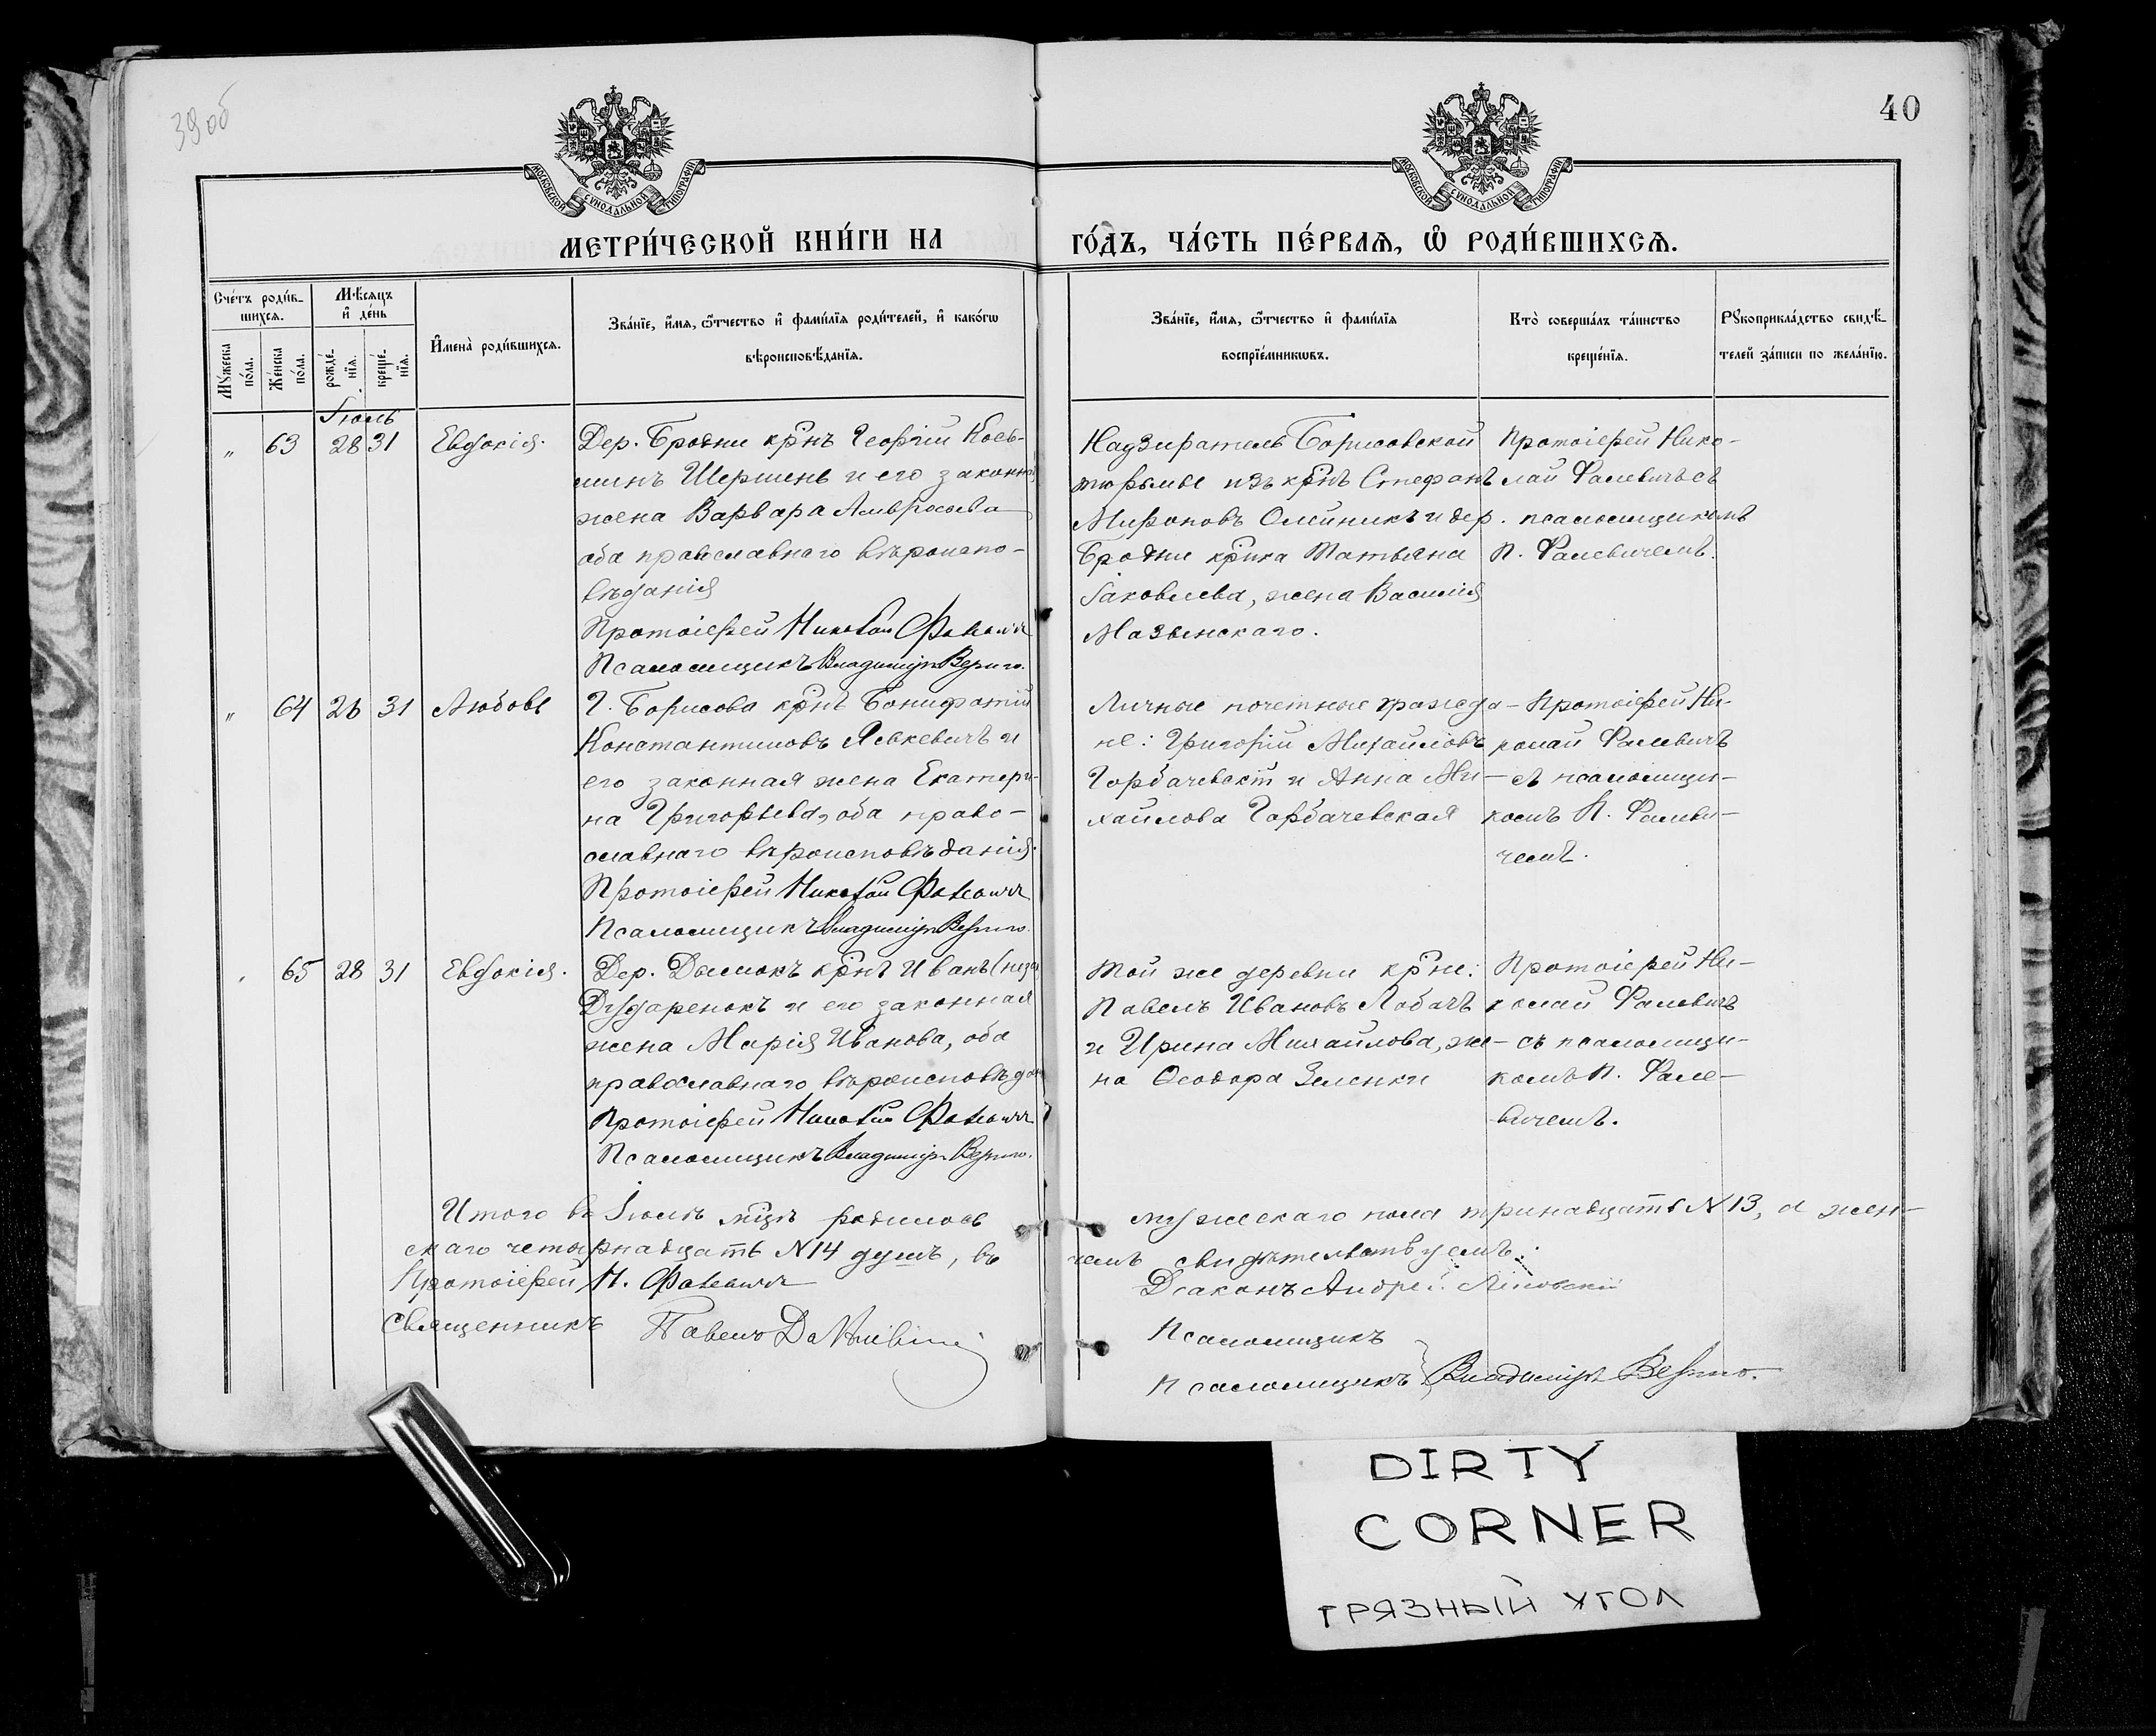 39об
40
МОСКОВСКОЙ СѴНОДАЛЬНОЙ ТИПОГРАФІИ
МОСКОВСКОЙ СѴНОДАЛЬНОЙ ТИПОГРАФІИ
МЕТРИ́ЧЕСКОЙ КНИ́ГИ НА ГО́ДЪ, ЧА́СТЬ ПЕ́РВАѦ, Ѽ РОДИ́ВШИХСѦ.
Сче́тъ роди́в-
шихсѧ.
Мꙋ́жеска по́ла.
Же́нска по́ла.
Мѣ́сѧцъ
и҆ де́нь
рожде́-
нїѧ.
креще́-
нїѧ.
И҆мена̀ роди́вшихсѧ.
Зва́нїе, и҆́мѧ, ѻ҆́тчество и҆ фами́лїѧ роди́телей, и҆ како́гѡ
вѣроисповѣ́данїѧ.
Зва́нїе, и҆́мѧ, ѻ҆́тчество и҆ фами́лїѧ
воспрїе́мникѡвъ.
Кто̀ соверша́лъ та́инство
креще́нїѧ.
Рꙋкоприкла́дство свидѣ́-
телей за́писи по жела́нїю.
Іюль
„ 63 28 31 Евдокія.
Дер. Бродни крнъ Георгій Кось-
минъ Шершень и его законная
жена Варвара Амвросьева
оба православнаго вѣроиспо-
вѣданія
Протоіерей Николай Фалевичъ
Псаломщикъ Владиміръ Вериго.
Надзиратель Борисовской
тюрьмы изъ крнъ Стефанъ
Мироновъ Олейникъ и дер.
Бродни крнка Татьяна
Іаковлева, жена Василія
Мазынскаго.
Протоіерей Нико-
лай Фалевичъ съ
псаломщикомъ
П. Фалевичемъ.
„ 64 28 31 Любовь
Г. Борисова крнъ Бонифатій
Константиновъ Яцкевичъ и
его законная жена Екатери-
на Григорьева, оба право-
славнаго вѣроисповѣданія.
Протоіерей Николай Фалевичъ
Псаломщикъ Владиміръ Вериго.
Личные почетные гражда-
не: Григорій Михайловъ
Горбачевскій и Анна Ми-
хайлова Горбачевская
Протоіерей Ни-
колай Фалевичъ
съ псаломщи-
комъ П. Фалеви-
чемъ.
„ 65 28 31 Евдокія.
Дер. Дымокъ крнъ Иванъ
Дударенокъ и его законная
жена Марія Иванова, оба
православнаго вѣроисповѣдан
Протоіерей Николай Фалевичъ
Псаломщикъ Владиміръ Вериго.
Той же деревни крне:
Павелъ Ивановъ Лобачъ
и Ирина Михайлова, же-
на Ѳеодора Зеленки
Протоіерей Ни-
колай Фалевичъ
съ псаломщи-
комъ П. Фале-
вичемъ.
Итого въ Іюлѣ мцѣ родилось мужескаго пола тринадцать N 13, а жен-
скаго четырнадцать N 14 душъ, въ чемъ свидѣтельствуемъ:
Протоіерей Н. Фалевичъ
Діаконъ Андрей
Священникъ Павелъ
Псаломщикъ
Псаломщикъ Владиміръ Вериго.
DIRTY
CORNER
ГРЯЗНЫЙ УГОЛ